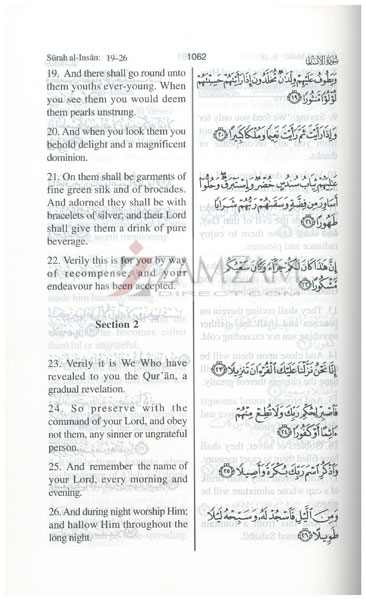 Sūrah al-Insān: 19–26
1062
سورة الإنسان
19. And there shall go round unto
them youths ever-young. When
you see them you would deem
them pearls unstrung.
20. And when you look them you
behold delight and a magnificent
dominion.
21. On them shall be garments of
fine green silk and of brocades.
And adorned they shall be with
bracelets of silver; and their Lord
shall give them a drink of pure
beverage.
22. Verily this is for you by way
of recompense, and your
endeavour has been accepted.
Section 2
23. Verily it is We Who have
revealed to you the Qur'ān, a
gradual revelation.
24. So preserve with the
command of your Lord, and obey
not them, any sinner or ungrateful
person.
25. And remember the name of
your Lord, every morning and
evening.
26. And during night worship Him;
and hallow Him throughout the
long night.
وَيَطُوفُ عَلَيْهِمْ وِلْدَانٌ مُّخَلَّدُونَ إِذَا رَأَيْتَهُمْ حَسِبْتَهُمْ
لُؤْلُؤًا مَّنثُورًا ١٩
وَإِذَا رَأَيْتَ ثَمَّ رَأَيْتَ نَعِيمًا وَمُلْكًا كَبِيرًا ٢٠
عَٰلِيَهُمْ ثِيَابُ سُندُسٍ خُضْرٌ وَإِسْتَبْرَقٌ وَحُلُّوا
أَسَاوِرَ مِن فِضَّةٍ وَسَقَىٰهُمْ رَبُّهُمْ شَرَابًا
طَهُورًا ٢١
إِنَّ هَٰذَا كَانَ لَكُمْ جَزَآءً وَكَانَ سَعْيُكُم
مَّشْكُورًا ٢٢
إِنَّا نَحْنُ نَزَّلْنَا عَلَيْكَ الْقُرْءَانَ تَنزِيلًا ٢٣
فَاصْبِرْ لِحُكْمِ رَبِّكَ وَلَا تُطِعْ مِنْهُمْ
ءَاثِمًا أَوْ كَفُورًا ٢٤
وَاذْكُرِ اسْمَ رَبِّكَ بُكْرَةً وَأَصِيلًا ٢٥
وَمِنَ الَّيْلِ فَاسْجُدْ لَهُ وَسَبِّحْهُ لَيْلًا
طَوِيلًا ٢٦
ZAMZAM
DIRECT.COM